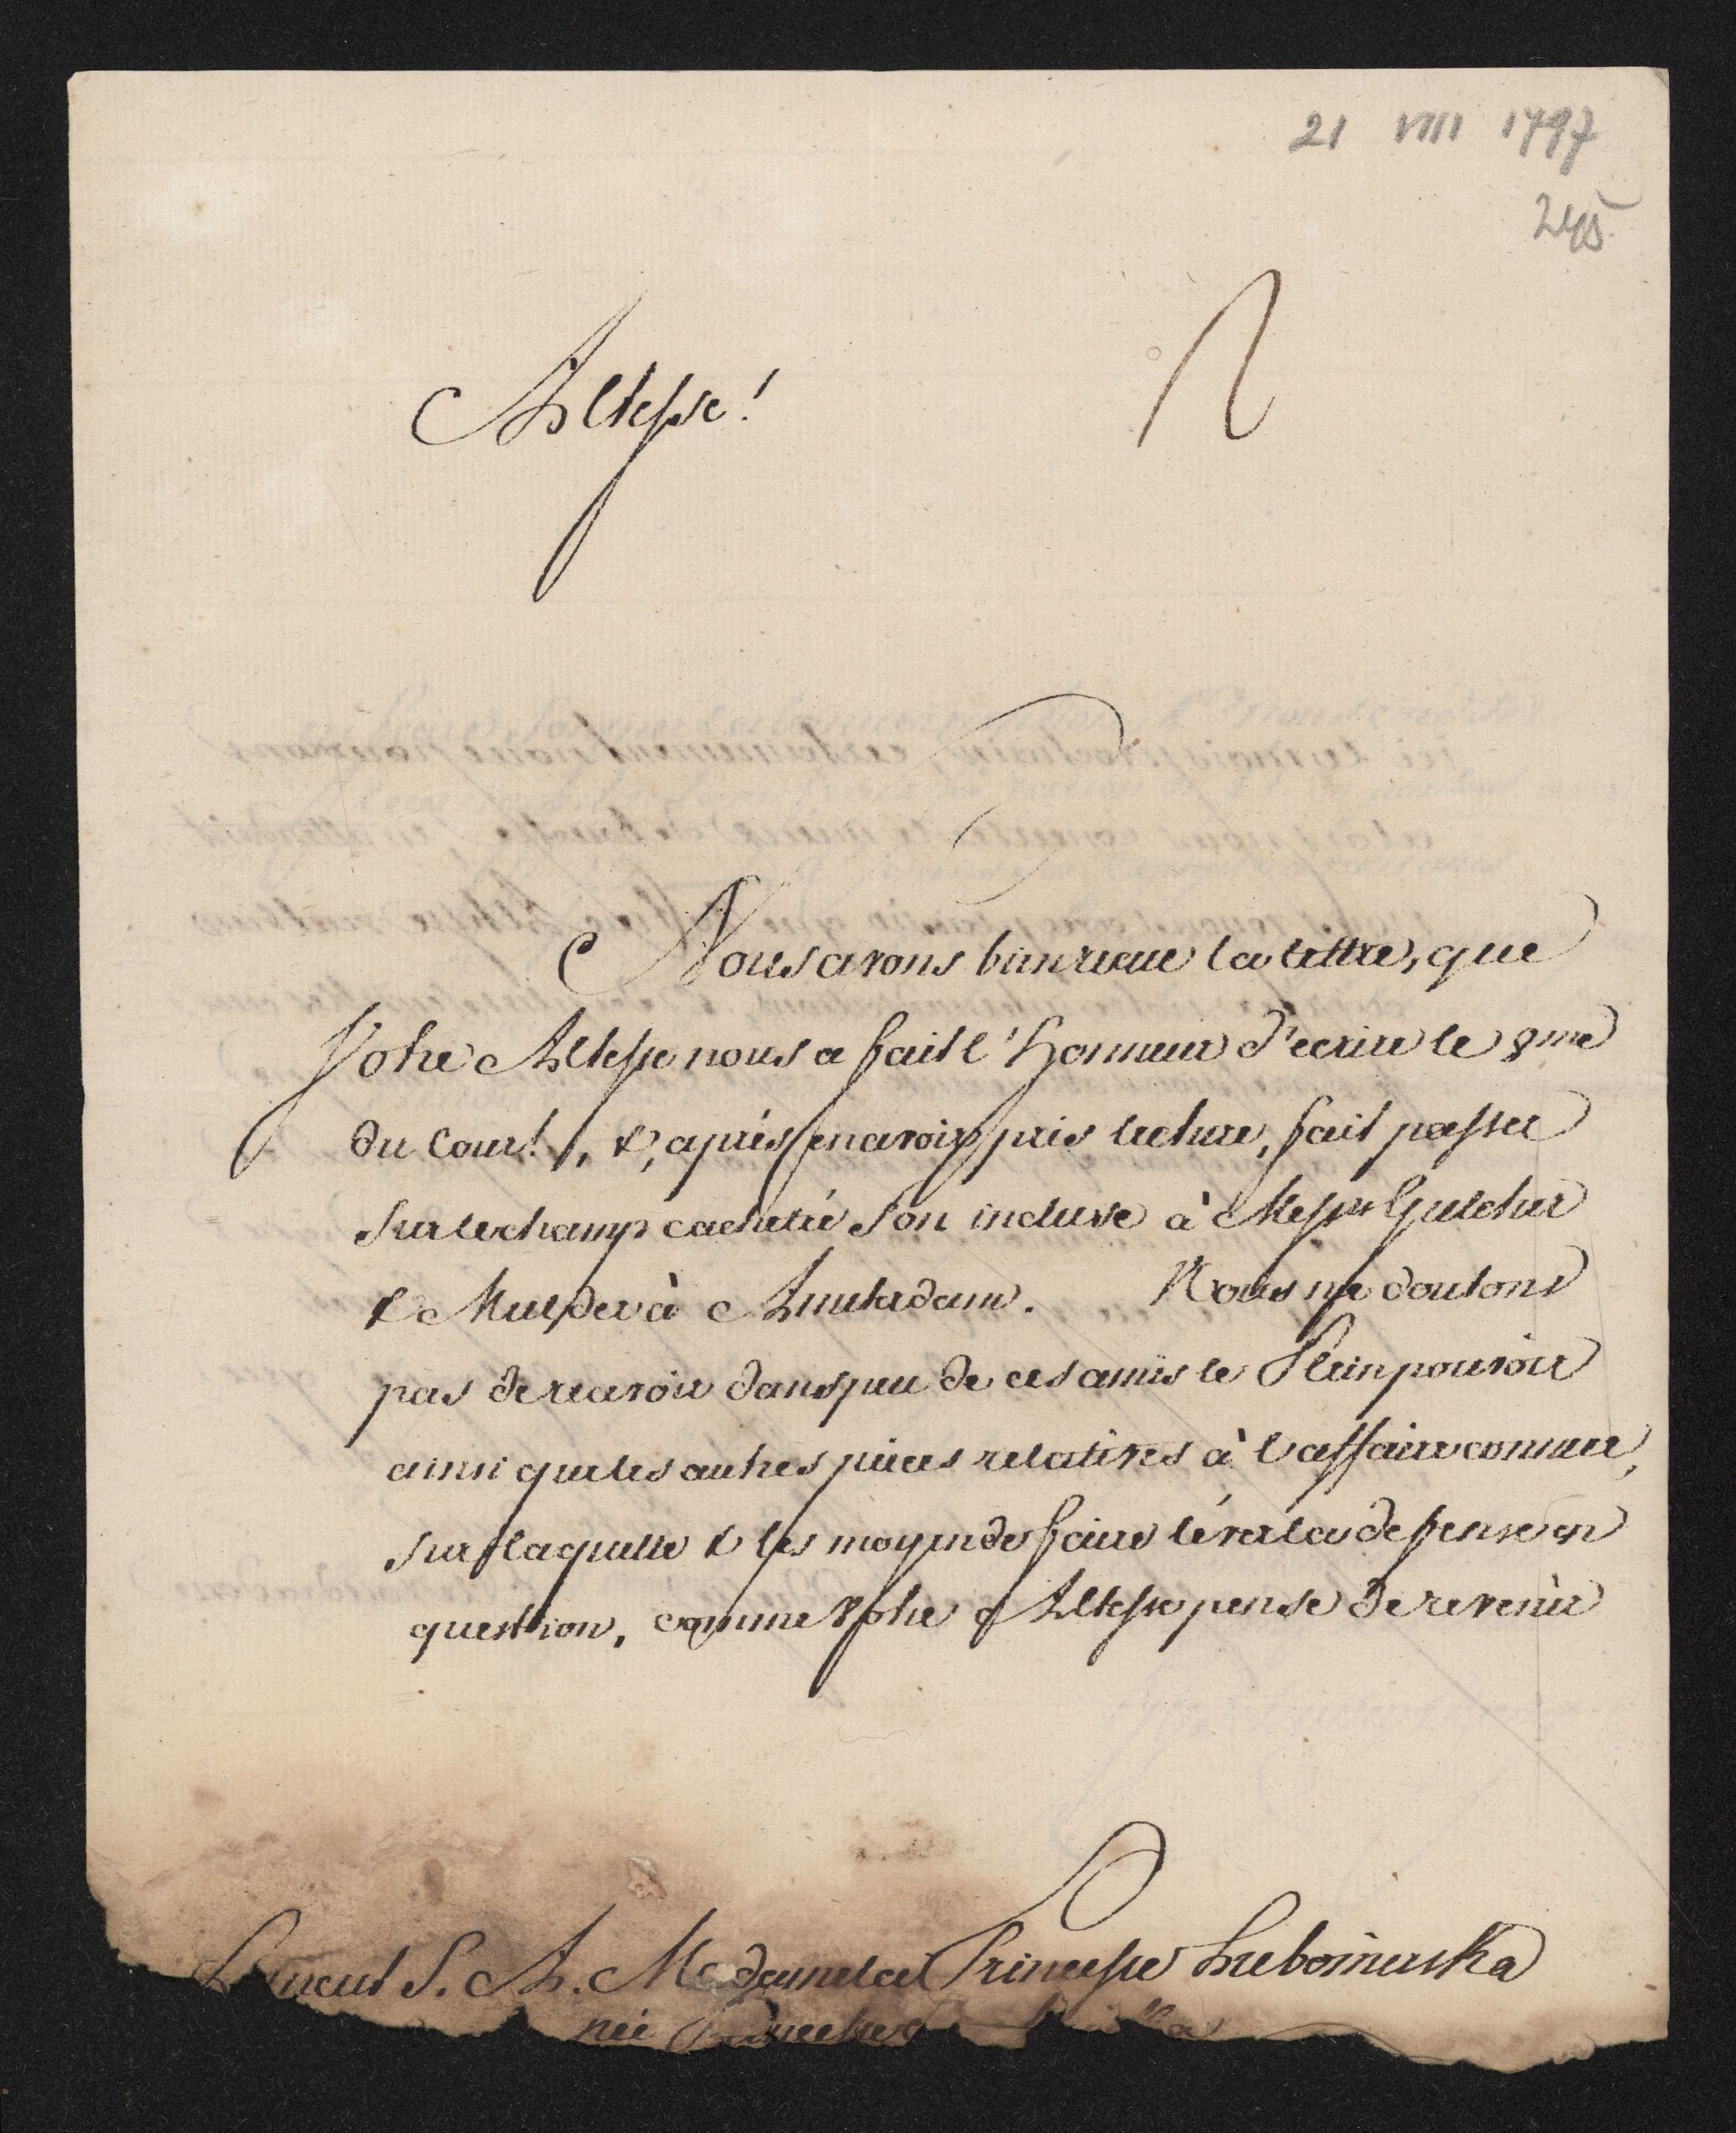 21 VIII 1797
245
Altesse!
Nous avons bien recue la lettre, que
Votre Altesse nous a fait l'Honneur d'ecrire le 8me
du Cour.t, &, aprés en avoir pris lecture, fait passer
sur le champ cachetée son incluse à Mess.rs Gulcher
& Mulder à Amsterdam. Nous ne doutons
pas de recevoir dans peu de ces amis le Pleinpouvoir
ainsi que les autres pièces relatives à l'affaire connue,
sur laquelle & les moyen de faire léver la defense en
question, comme Votre Altesse pense de revenir
S. A. Madame la Princesse Lubomirska
née Princesse